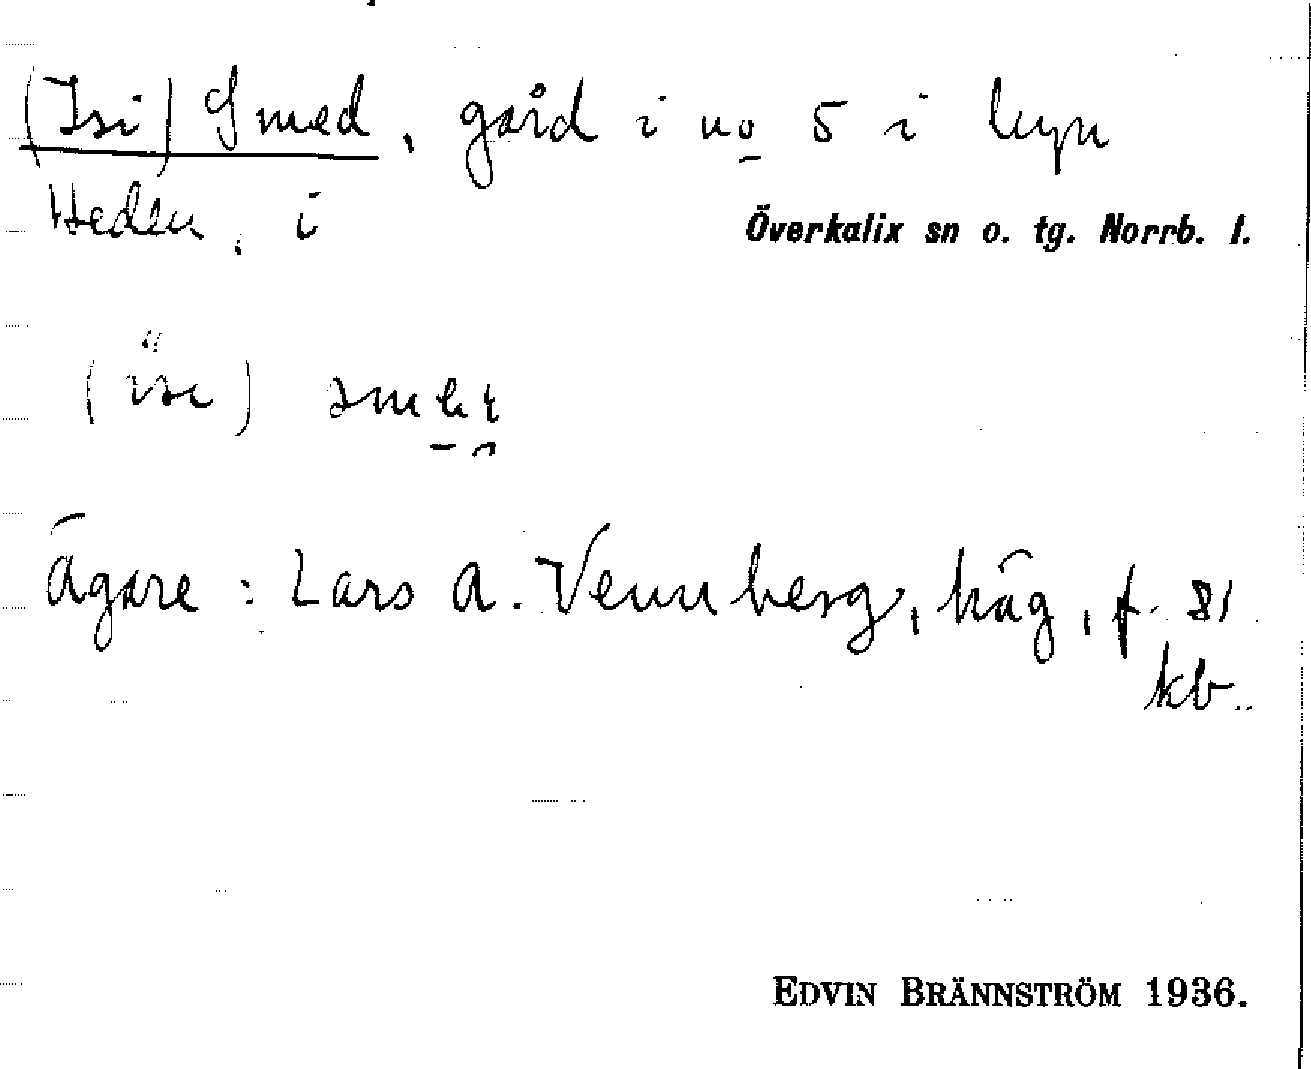 (Isi) Smed, gård i no 5 i byn
Heden, i
Överkalix sn o. tg. Norrb. l.
Ägare: Lars A. Vennberg, häg, f. 81
kb.
EDVIN BRÄNNSTRÖM 1936.